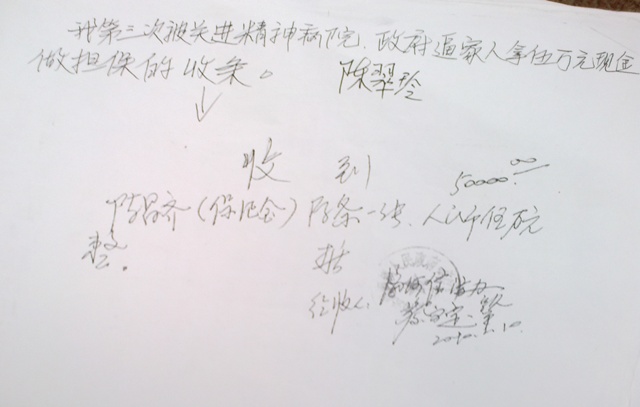 我第三次被关进精神病院、政府逼家人拿伍万元现金
做担保的收条。 陈翠玲
收到
50000.00
陈昌齐(保证金)陈条一张、人民币伍万元
整。
据
经收人:
2010.1.10